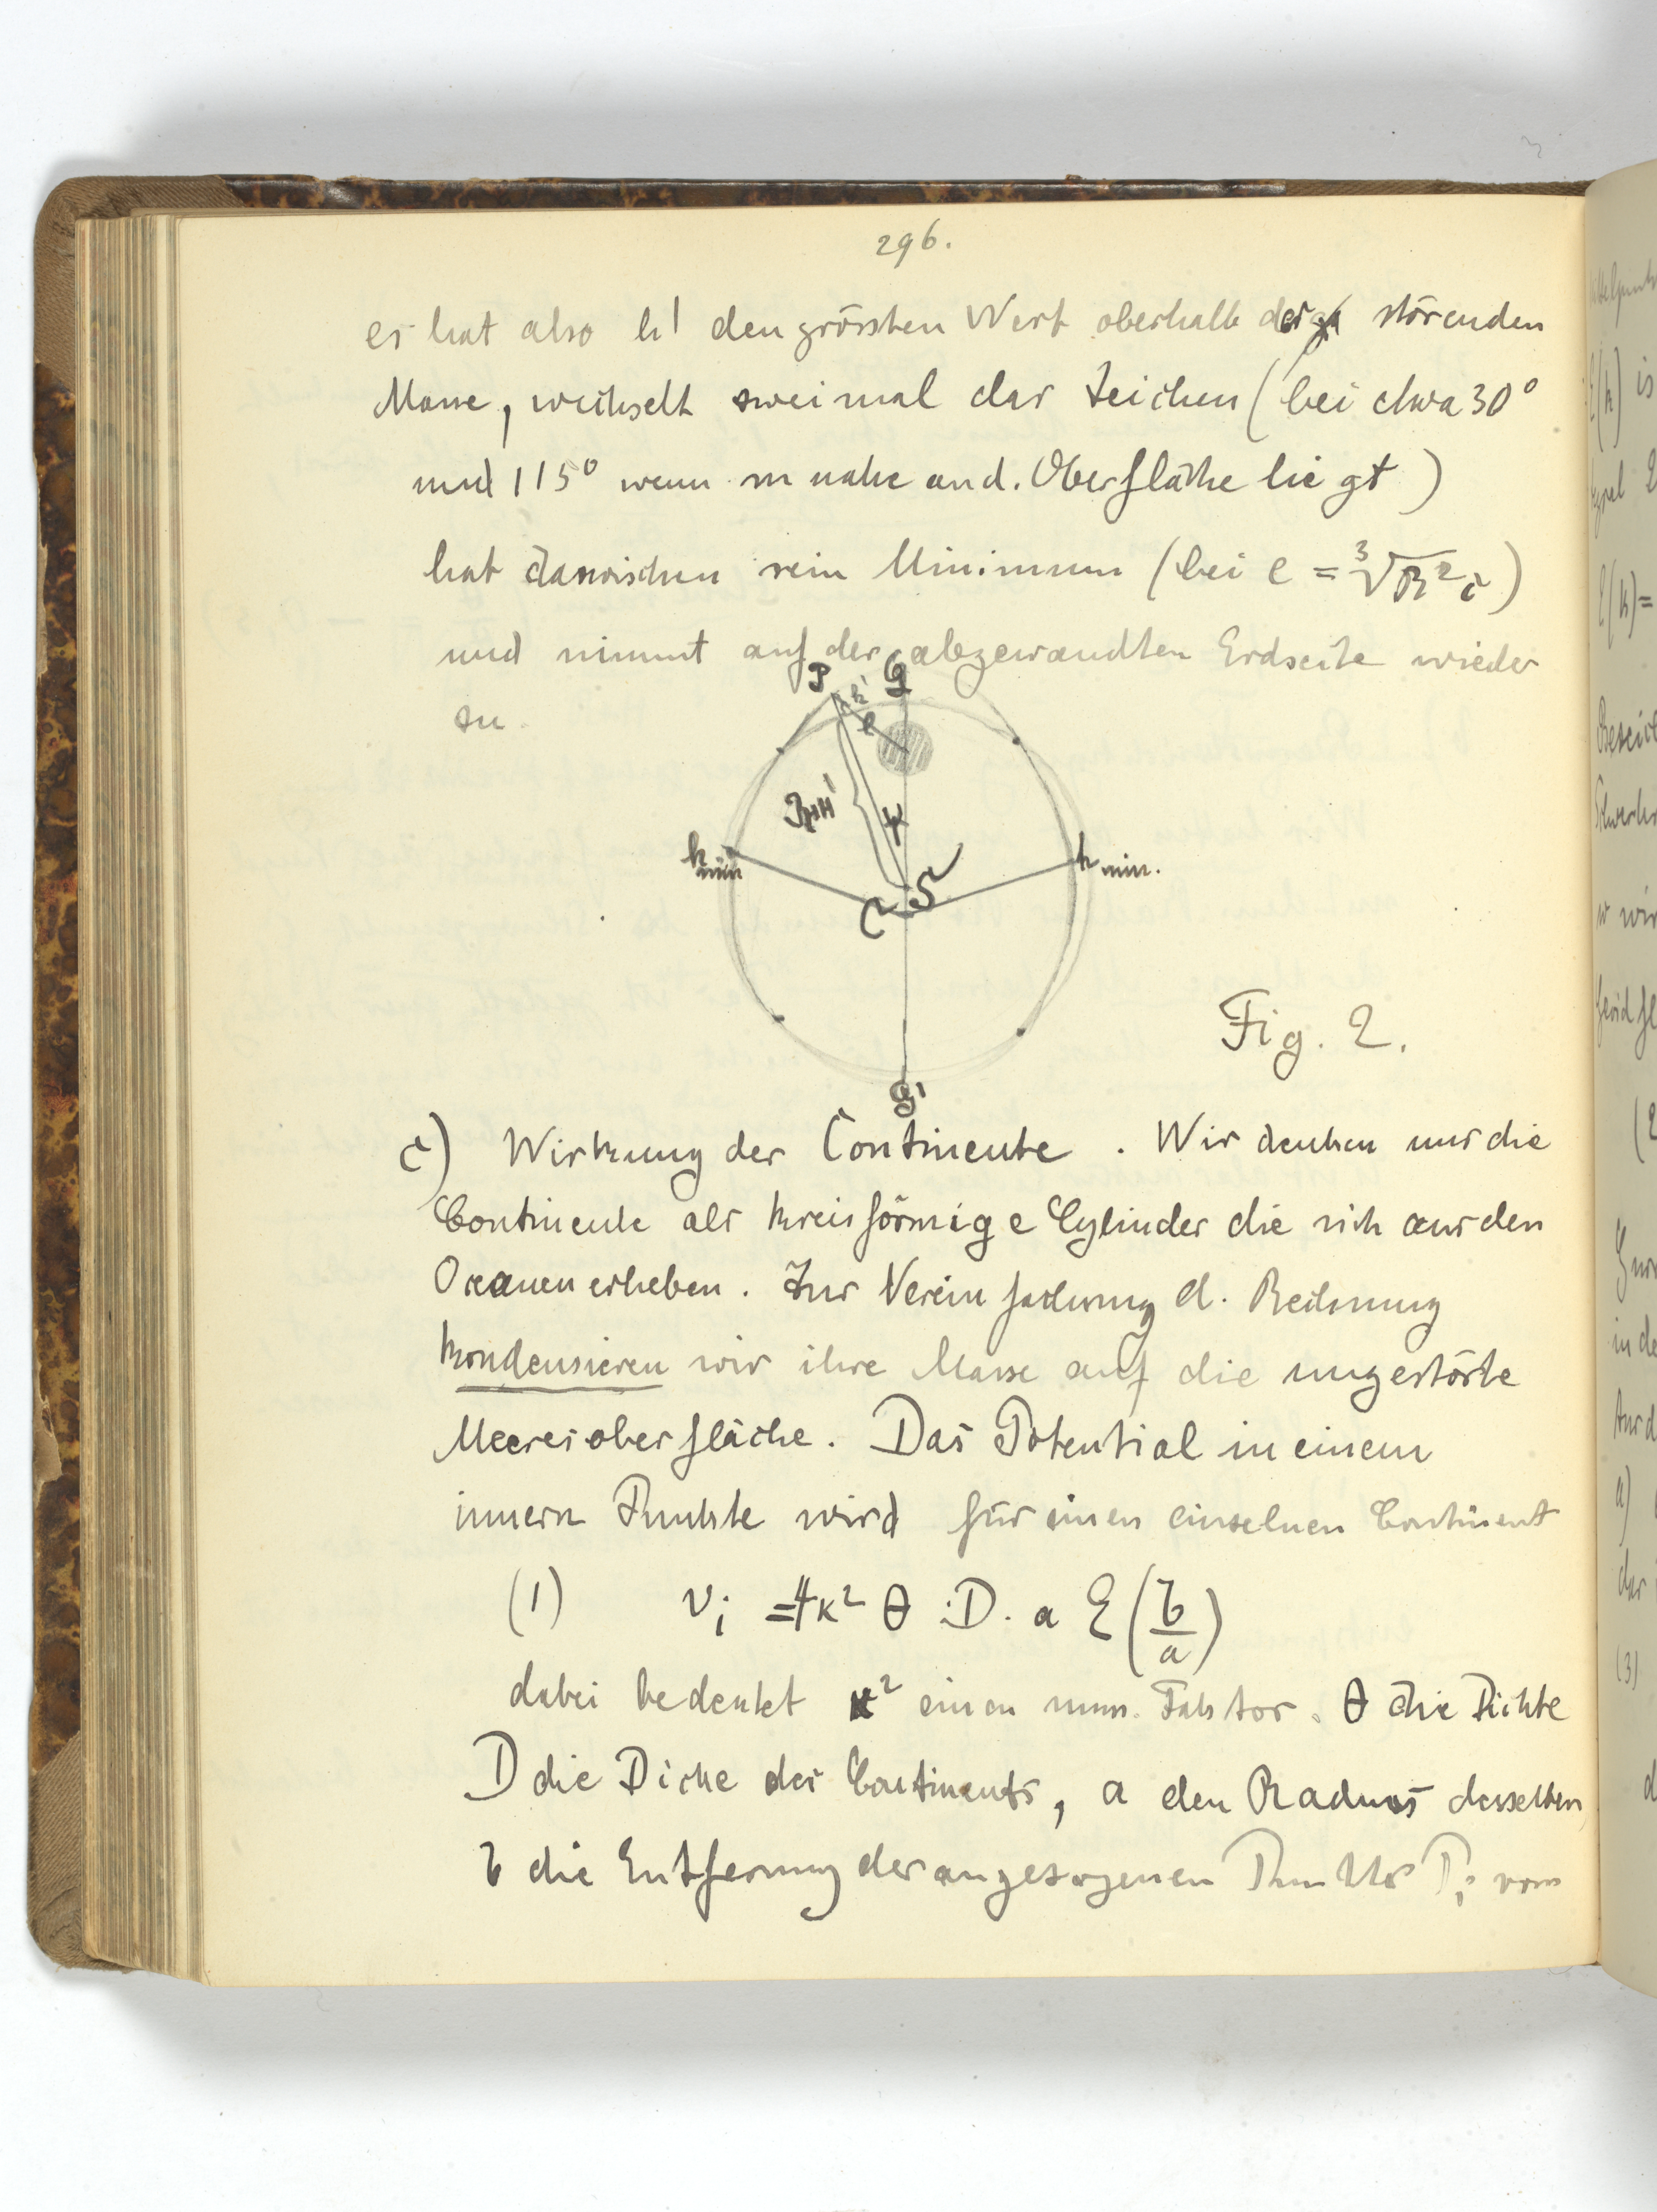 296.
es hat also h' den grössten Wert oberhalb der störenden
Masse, wechselt zweimal das Zeichen (bei etwa 30°
und 115° wenn m nahe an d. Oberfläche liegt)
hat dazwischen sein Minimum (bei e = ∛R²c)
und nimmt auf der abgewandten Erdseite wieder
zu.
P
h'
e
R+h'
ψ
h min
h min.
C
S
Fig. 2.
c) Wirkung der Continente. Wir denken uns die
Continente als kreisförmige Cylinder die sich aus den
Ozeanen erheben. Zur Vereinfachung d. Rechnung
kondensieren wir ihre Masse auf die ungestörte
Meeresoberfläche. Das Potential in einem
innern Punkte wird für einen einzelnen Continent
(1) vᵢ = 4κ² θ . D . a E(b/a)
dabei bedeutet κ² einen num. Faktor. θ die Dichte
D die Dicke des Continents, a den Radius desselben
b die Entfernung des angezogenen Punktes Pᵢ vom
is
(3)